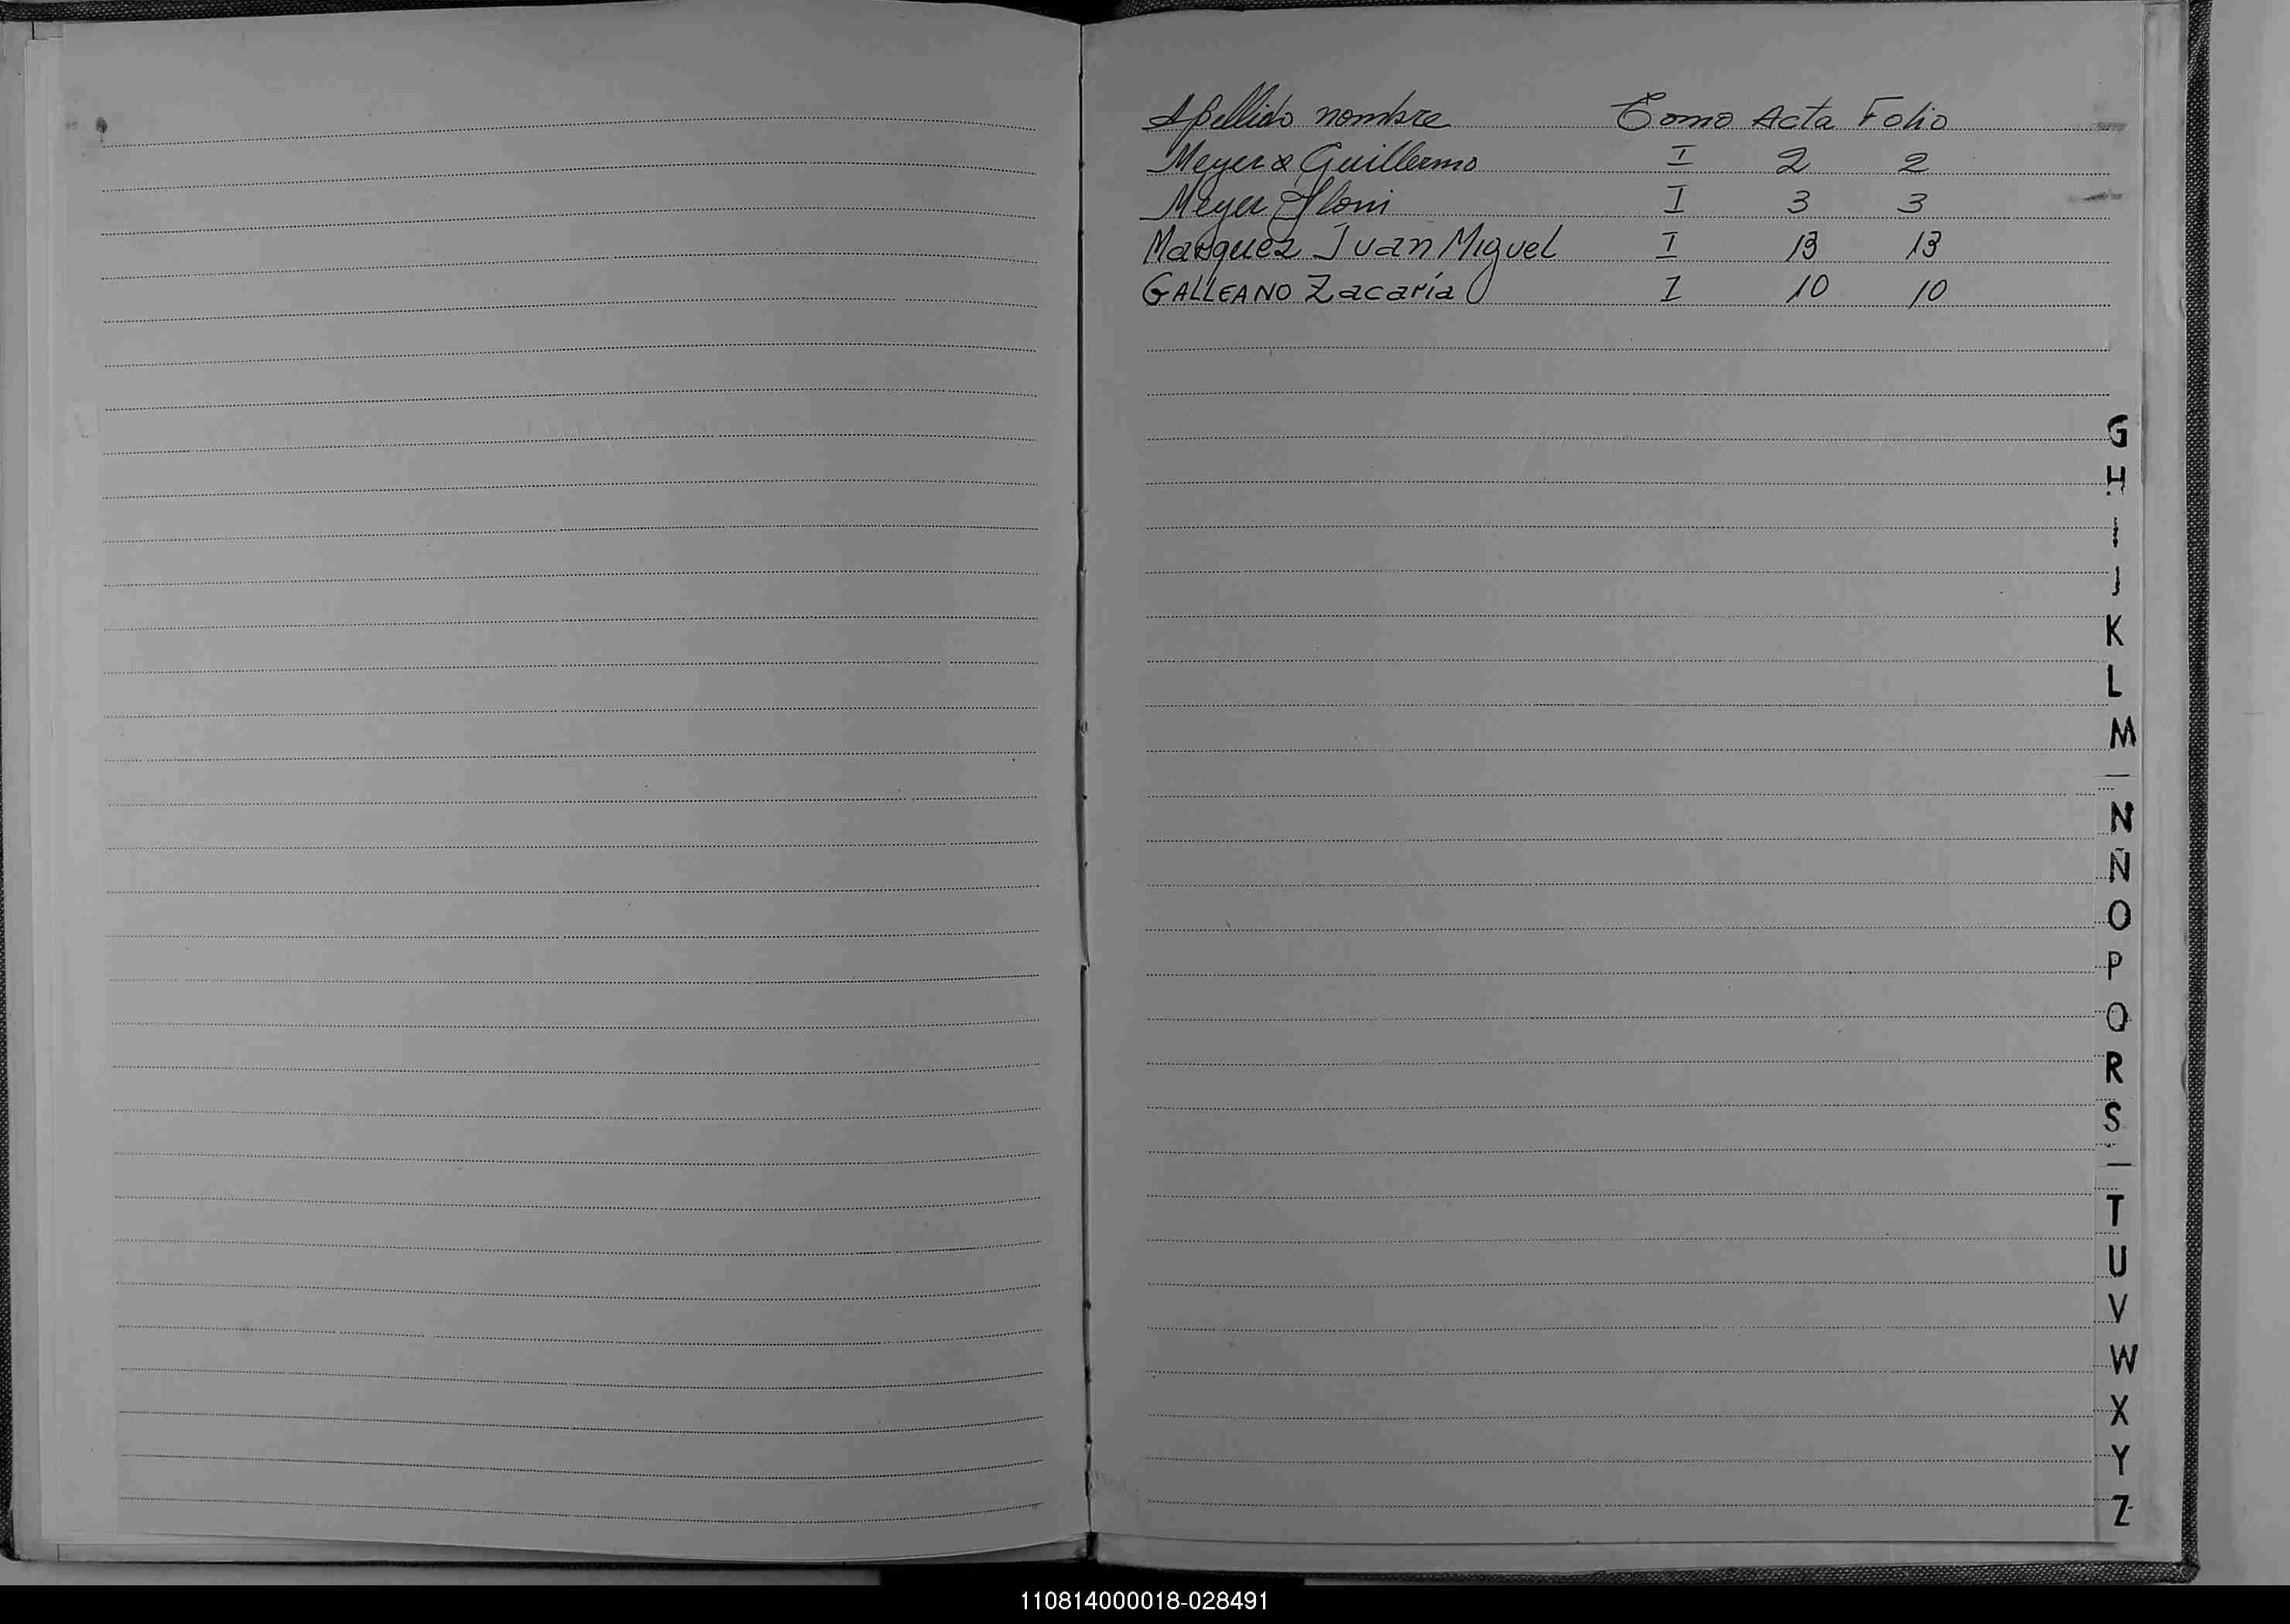 Apellido nombre Tomo Acta Folio
Meyer Guillermo I 2 2
Meyer I 3 3
Marquez Juan Miguel I 13 13
GALLEANO Zacaría I 10 10
G
H
I
J
K
L
M
N
Ñ
O
P
Q
R
S
T
U
V
W
X
Y
Z
110814000018-028491